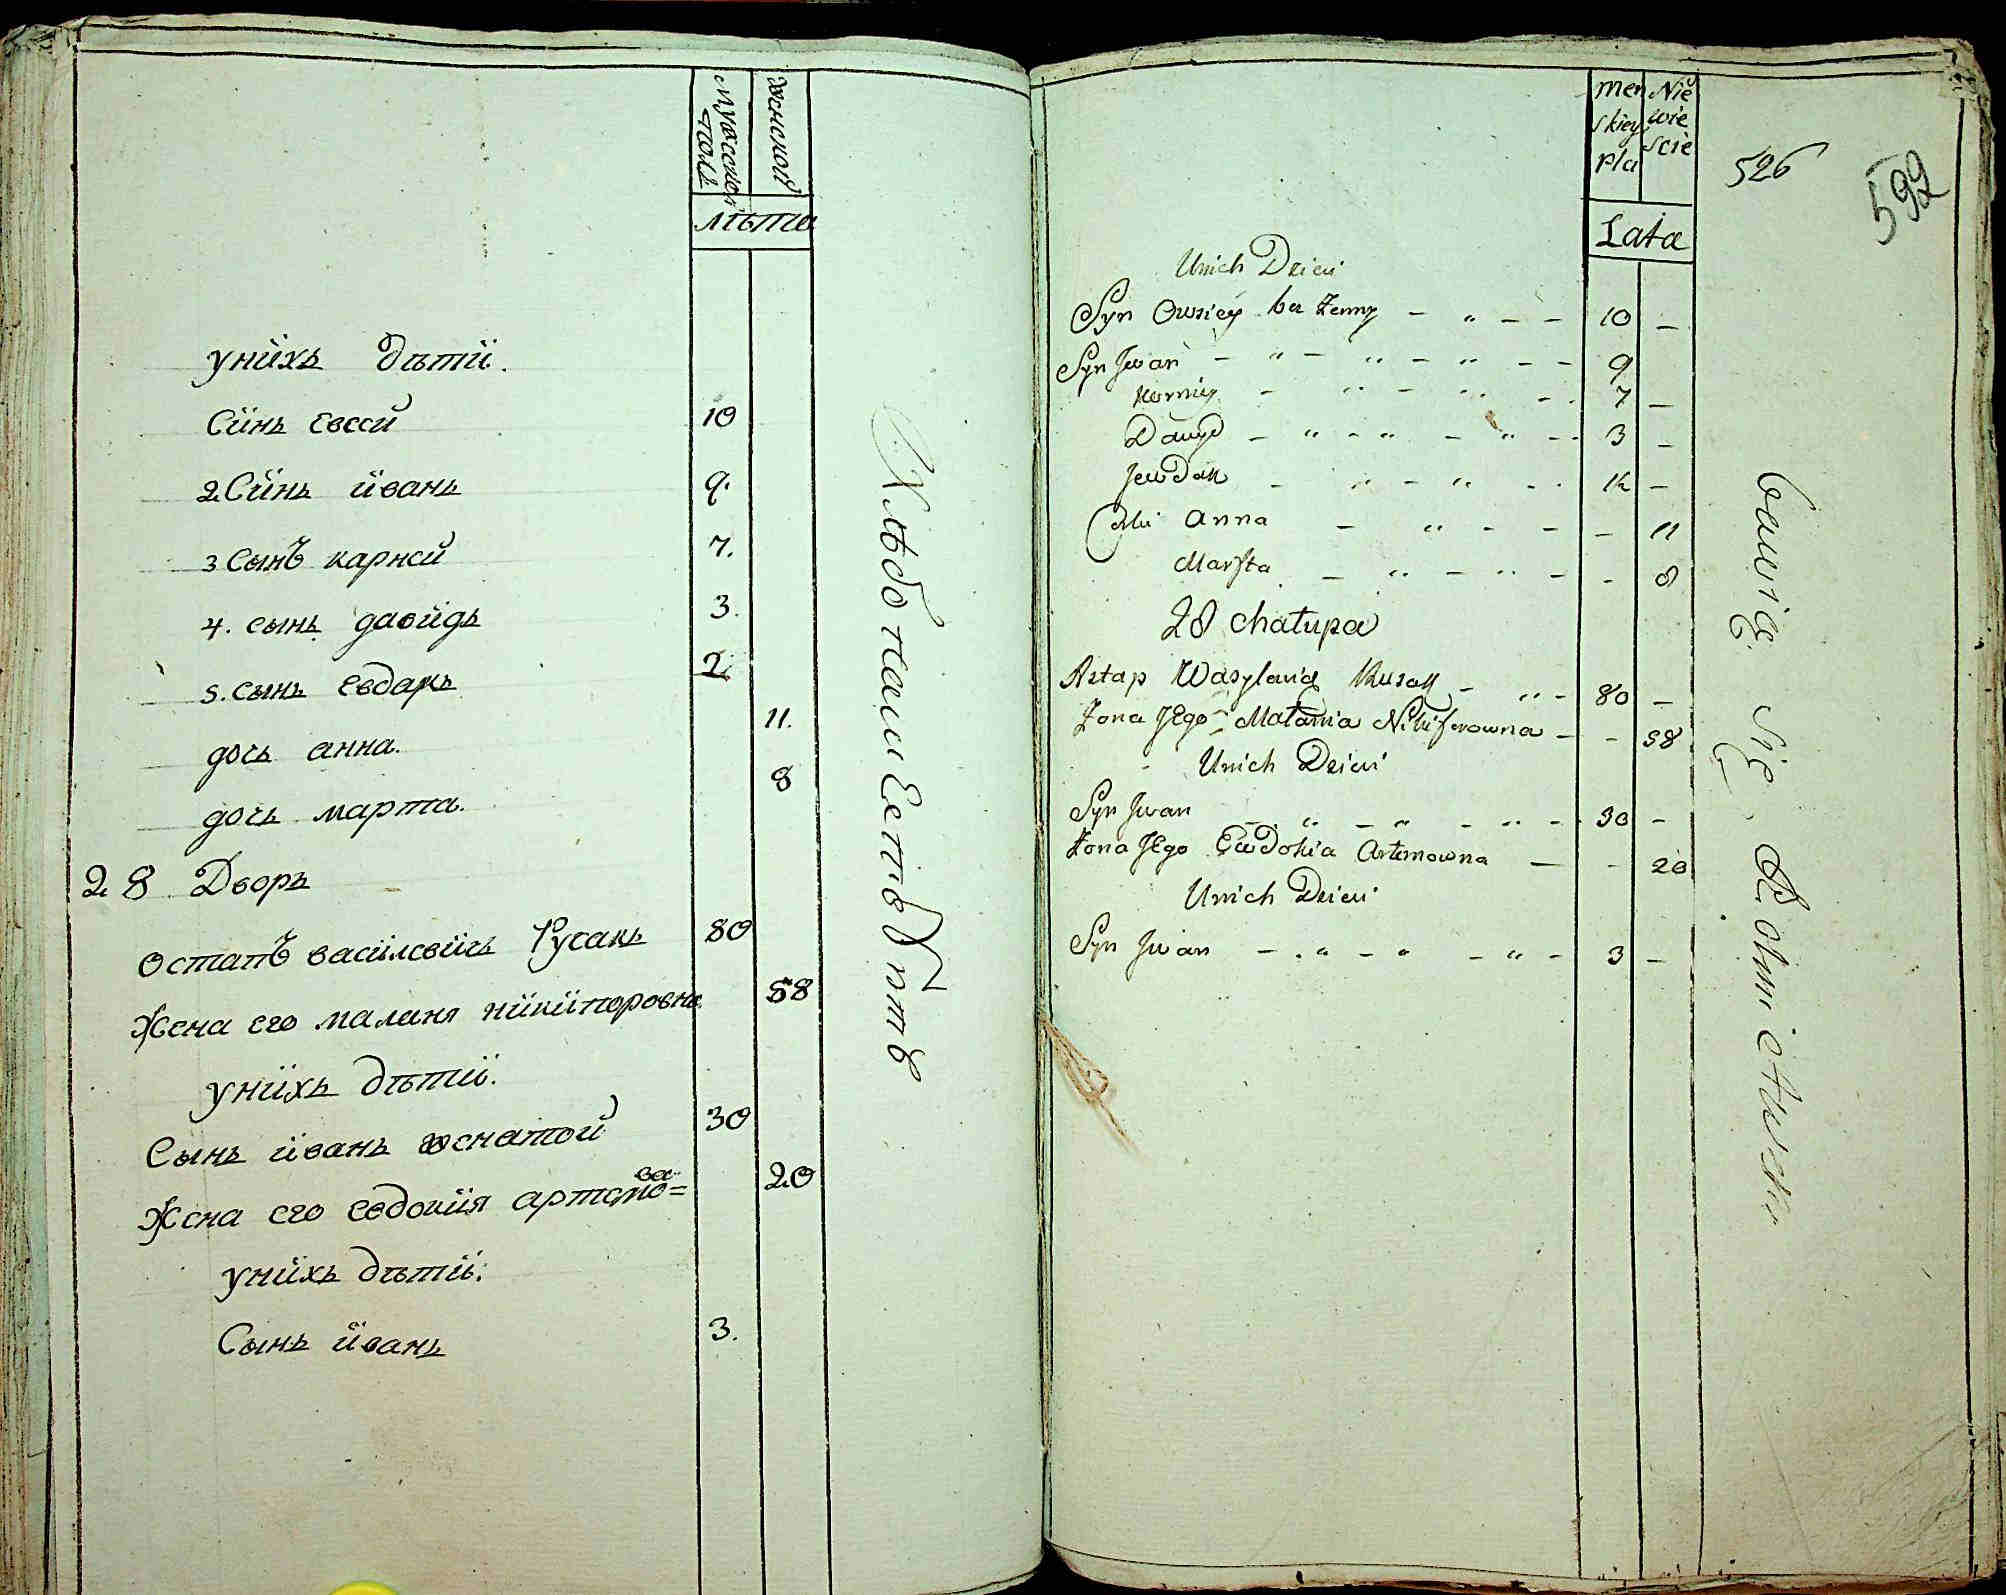 мужской полъ
женской
лѣта
унїхъ дѣтїи.
Сїнъ евсей 10
2 Сїнъ їванъ 9.
3 Сынъ карней 7.
4. сынъ давїдъ 3.
5. сынъ евдакъ 2.
дочь анна. 11.
дочь марта. 8
28 Дворъ
Остапъ васїлевїчъ Русакъ 80
Жена его маланя нїкїпоровна 58
унїхъ дѣтїи.
Сынъ їванъ женатой 30
Жена его евдокїя артемо=вна 20
унїхъ дѣтїи.
Сынъ їванъ 3.
Хлѣбопашествѣ
Men skiey płci
Nie wie scie
526
592
Lata
Unich Dzieci
Syn Owsiey bez Zenny 10 —
Syn Jwan 9
Korniey 7 —
Dawyd 3 —
Jewdak —
Anna — 11
Marfta — 8
28 chałupa
Astap Wasylowicz Rusak 80 —
Zona JEgo Małania Nikiforowna — 58
Unich Dzieci
Syn Jwan 30 —
Zona JEgo Ewdokia Artemowna — 20
Unich Dzieci
Syn Jwan 3 —
bawią się Rolnictwem